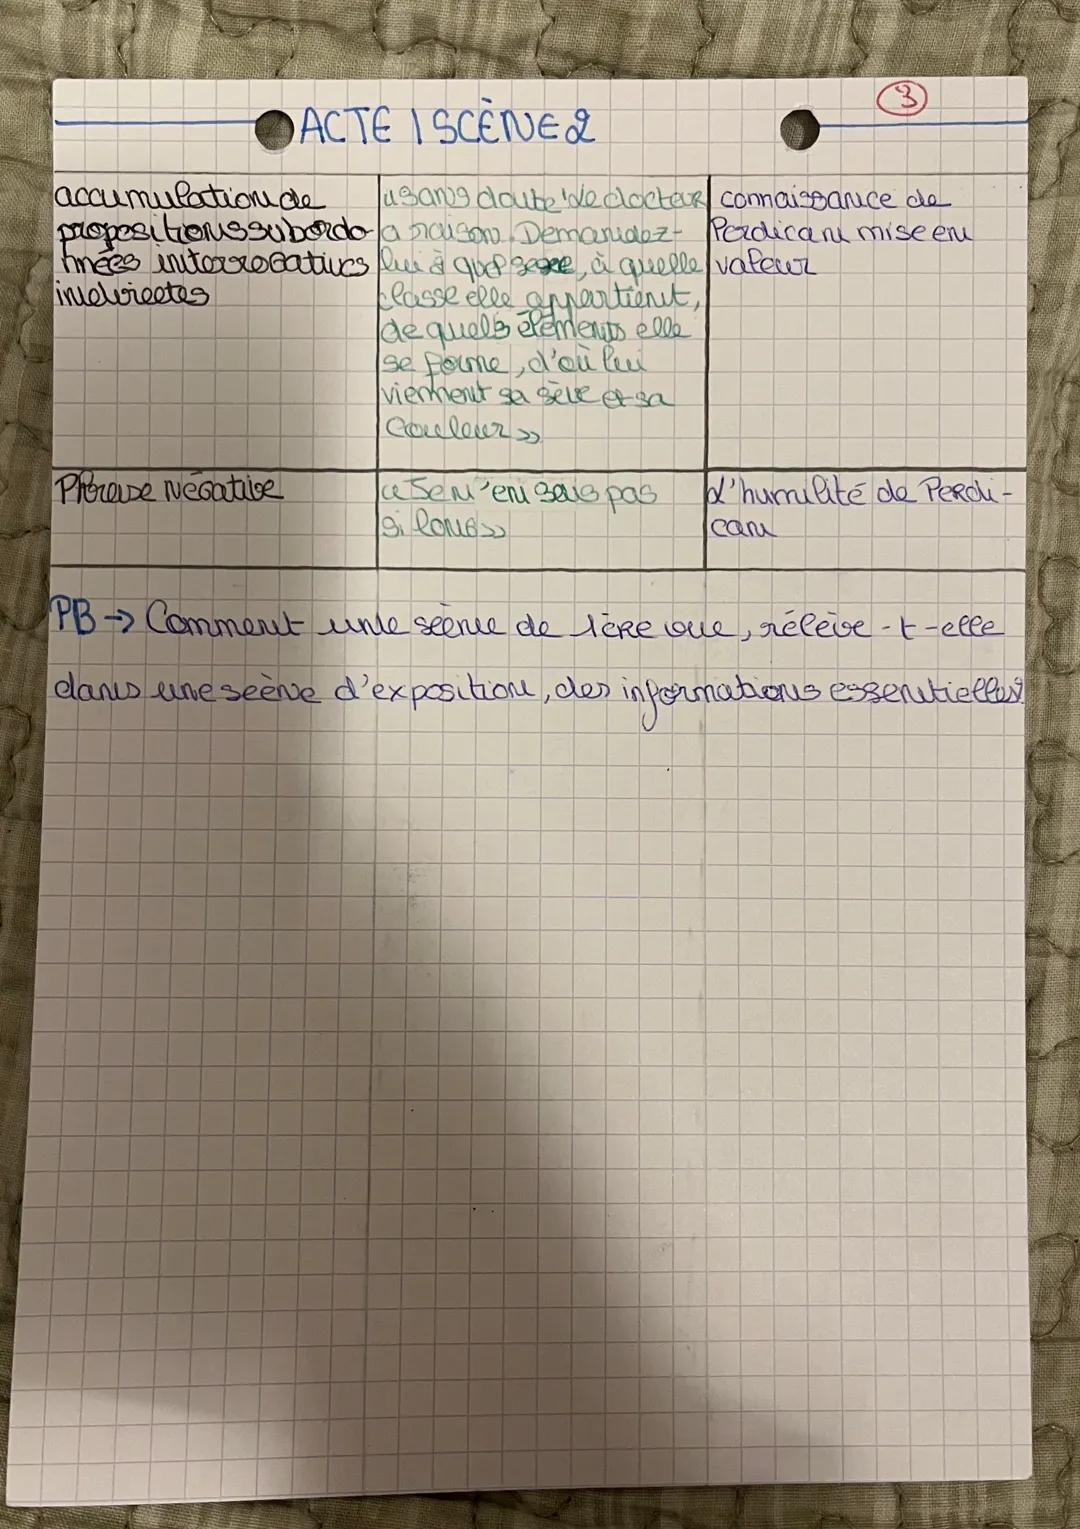 3
ACTE 1 SCÈNE 2
accumulation de
propositions subordo-
nnées interrogatives
indirectes
«sans doute le docteur
a raison. Demandez-
lui à quel sexe, à quelle
classe elle appartient,
de quels éléments elle
se forme, d'où lui
viennent sa sève et sa
couleur»
connaissance de
Perdican mise en
valeur
Phrase Négative
«Je n'en sais pas
si long»
l'humilité de Perdi-
can
PB → Comment une scène de 1ère vue, rélève-t-elle
dans une scène d'exposition, des informations essentielles?